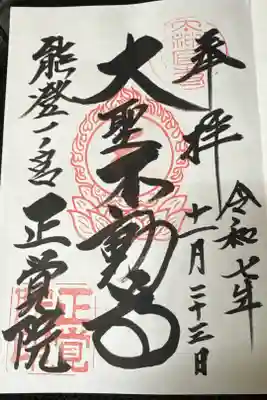 奉拝
令和七年
十一月二十三日
大聖不動尊
能登一ノ宮 正覚院
正覚